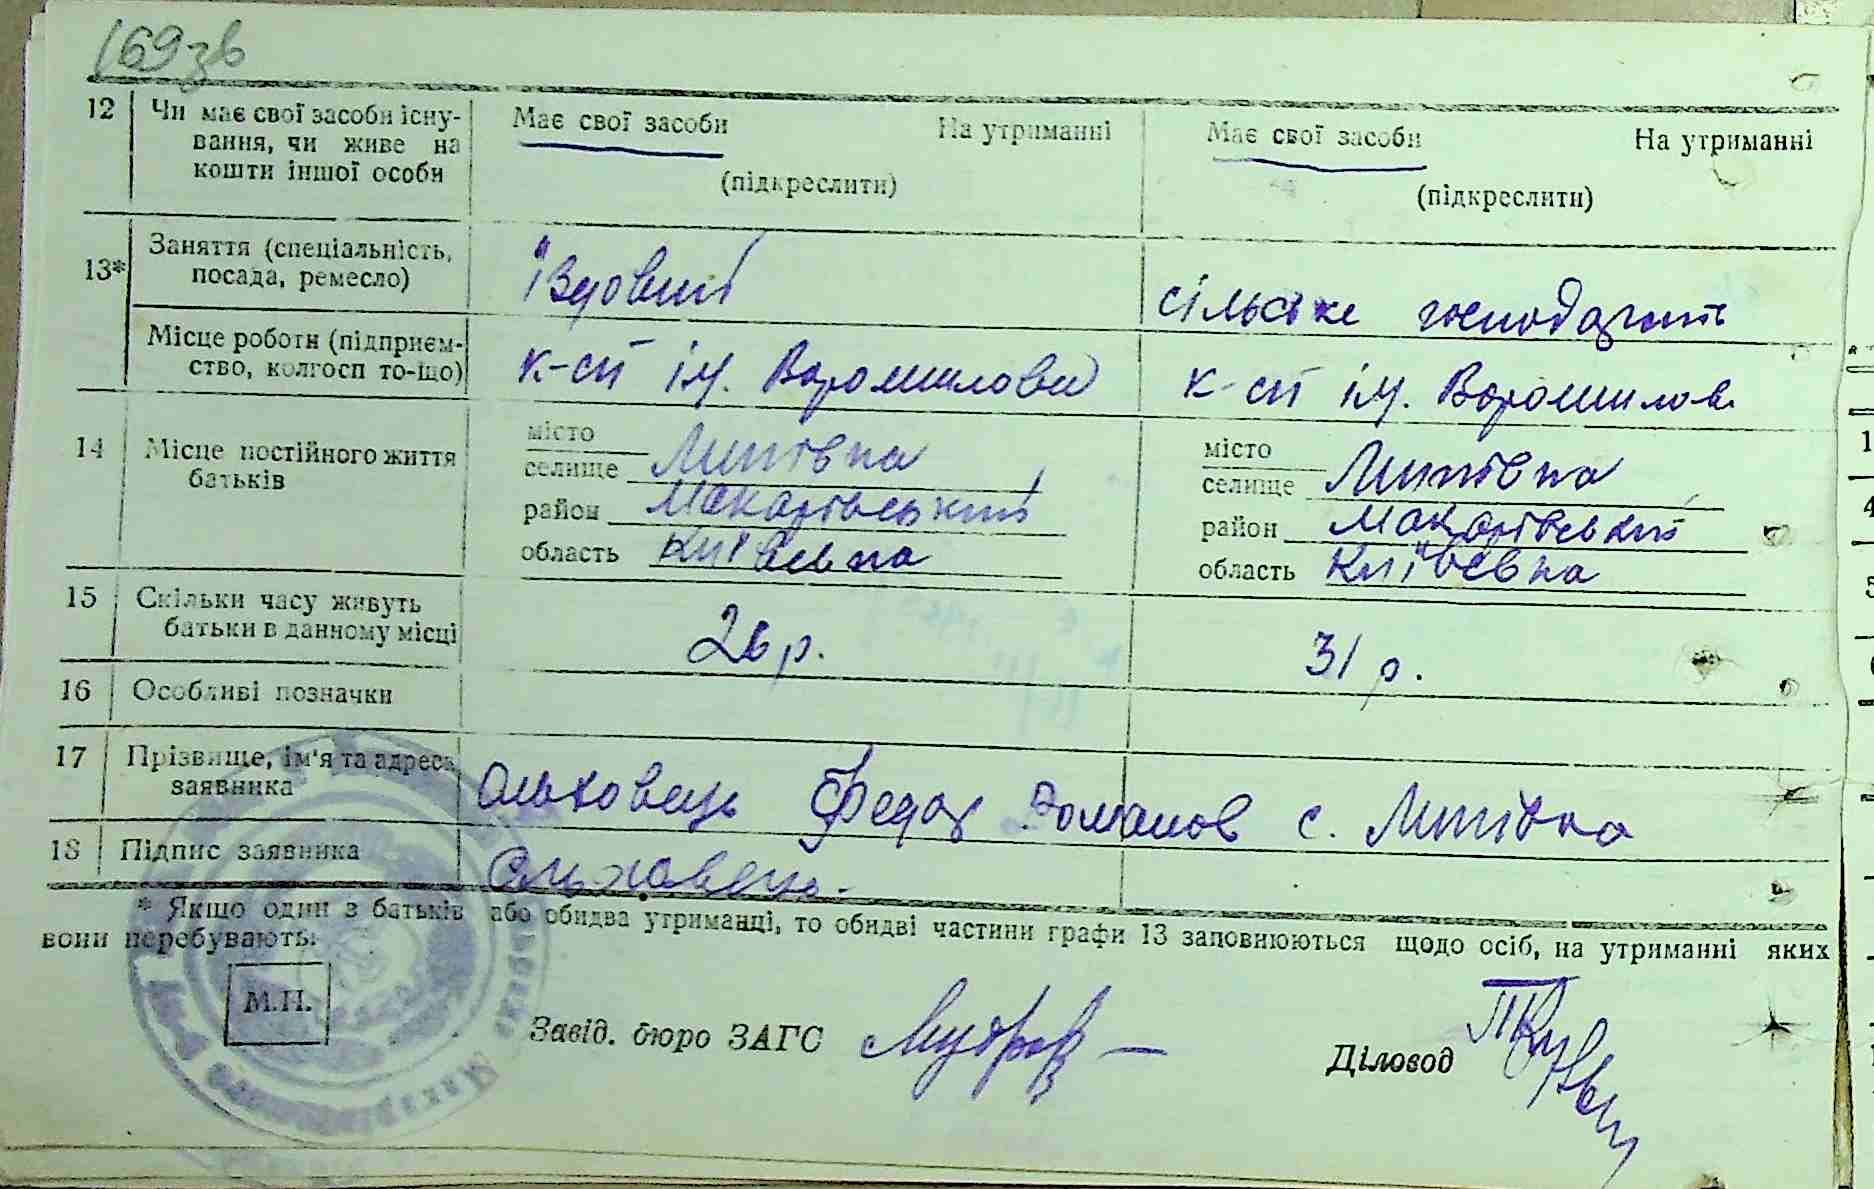 169зв
12 Чи має свої засоби існу-
вання, чи живе на
кошти іншої особи
Має свої засоби На утриманні
(підкреслити)
Має свої засоби На утриманні
(підкреслити)
13* Заняття (спеціальність,
посада, ремесло)
їздовий
сільське
Місце роботи (підприєм-
ство, колгосп то-що)
к-сп ім. Ворошилова
к-сп ім. Ворошилов
14 Місце постійного життя
батьків
місто
селище Липівка
район Макарівський
область Київська
місто
селище Липівка
район Макарівський
область
15 Скільки часу живуть
батьки в данному місці
26 р.
31 р.
16 Особливі позначки
17 Прізвище, ім'я та адреса
заявника
Ольховець Федор Романов с. Липівка
18 Підпис заявника
Ольховець.
* Якщо один з батьків або обидва утриманці, то обидві частини графи 13 заповнюються щодо осіб, на утриманні яких
вони перебувають.
М.П.
Завід. бюро ЗАГС
Діловод